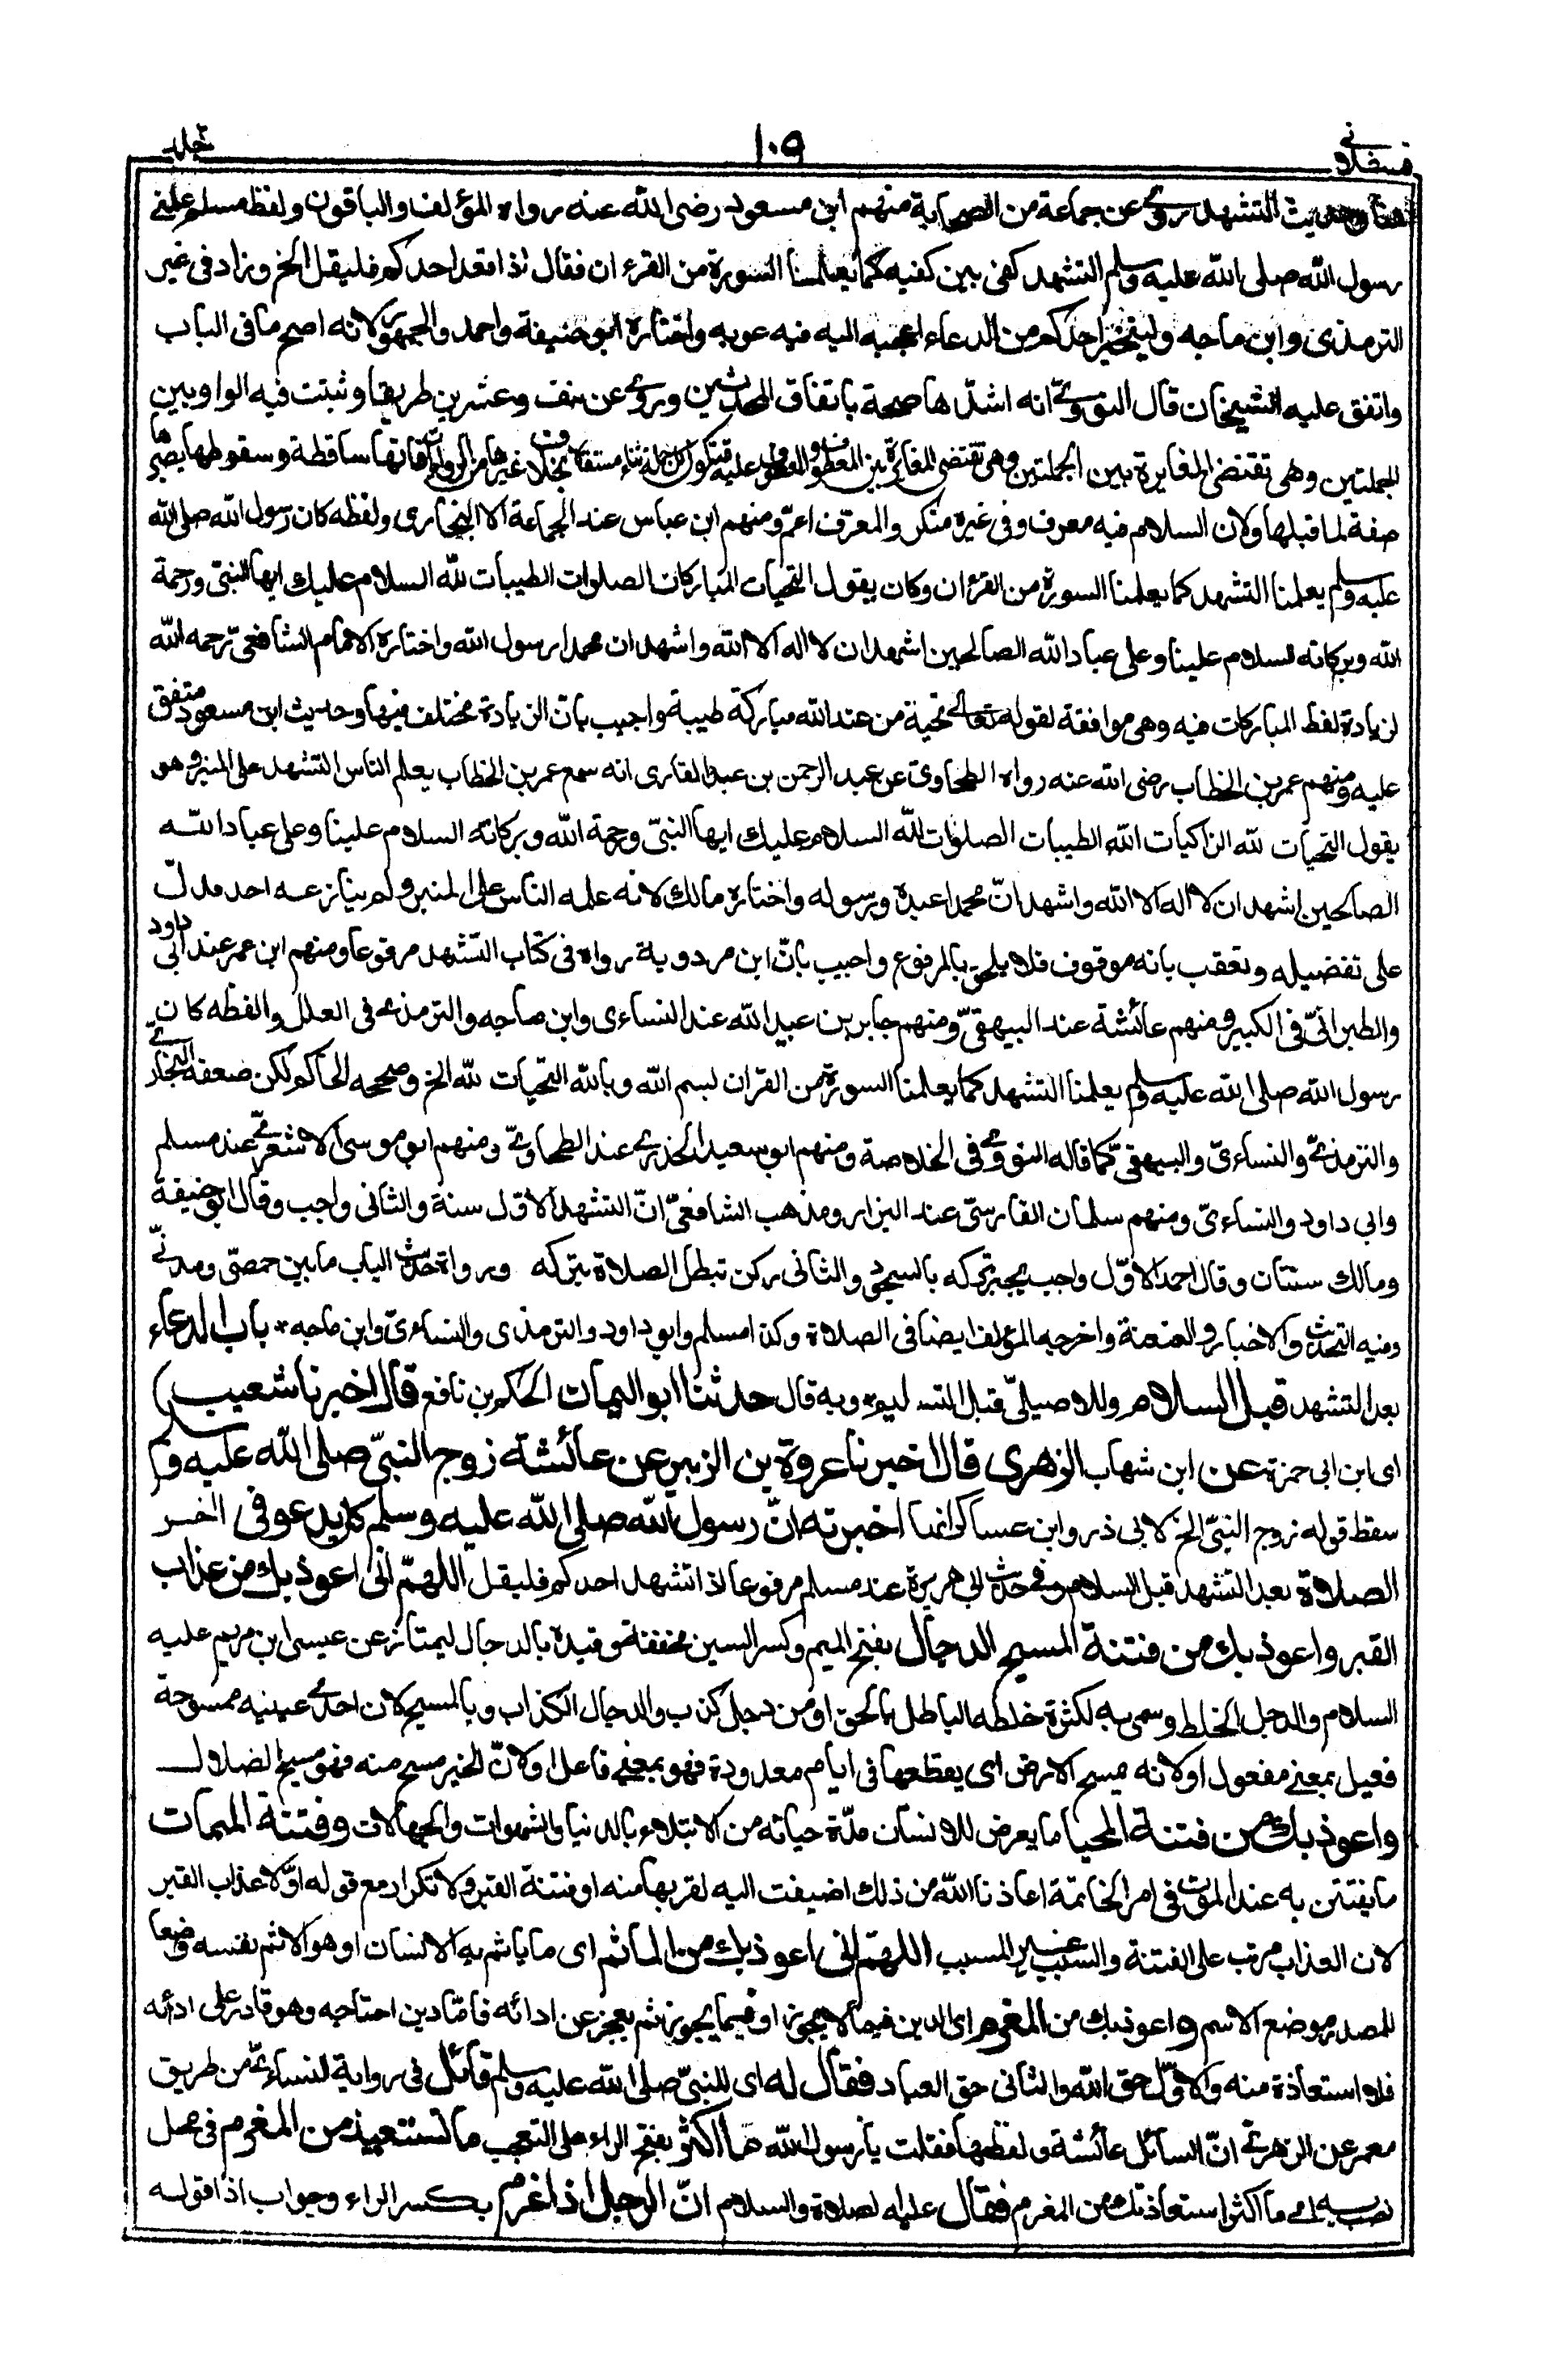 قسطلاني ١٠٥ جلد
وحديث التشهد روى عن جماعة من الصحابة منهم ابن مسعود رضى الله عنه رواه المؤلف والباقون ولفظ مسلم علمنى
رسول الله صلى الله عليه وسلم التشهد كفى بين كفيه كما يعلمنا السورة من القرءان فقال اذا قعد احدكم فليقل الخ وزاد فى غير
الترمذى وابن ماجه وليتخير احدكم من الدعاء اعجبه اليه فيدعو به واختاره ابو حنيفة واحمد والجمهور لانه اصح ما فى الباب
واتفق عليه الشيخان قال النووى انه اشدها صحة باتفاق المحدثين وروى عن نيف وعشرين طريقا وثبتت فيه الواو بين
الجملتين وهى تقتضى المغايرة بين الجملتين وهى تقتضى المغايرة بين المعطوف والمعطوف عليه فتكون كل جملة ثناء مستقلا بخلاف غيرها من الروايات فانها ساقطة وسقوطها يصيرها
صفة لما قبلها ولان السلام فيه معرف وفى غيره منكر والمعرف اعم ومنهم ابن عباس عند الجماعة الا البخارى ولفظه كان رسول الله صلى الله
عليه وسلم يعلمنا التشهد كما يعلمنا السورة من القرءان وكان يقول التحيات المباركات الصلوات الطيبات لله السلام عليك ايها النبى ورحمة
الله وبركاته السلام علينا وعلى عباد الله الصالحين اشهد ان لا اله الا الله واشهد ان محمدا رسول الله واختاره الامام الشافعى رحمه الله
لزيادة لفظ المباركات فيه وهى موافقة لقوله تعالى تحية من عند الله مباركة طيبة واجيب بان الزيادة مختلف فيها وحديث ابن مسعود متفق
عليه ومنهم عمر بن الخطاب رضى الله عنه رواه الطحاوى عن عبد الرحمن بن عبد القارى انه سمع عمر بن الخطاب يعلم الناس التشهد على المنبر وهو
يقول التحيات لله الزاكيات لله الطيبات الصلوات لله السلام عليك ايها النبى ورحمة الله وبركاته السلام علينا وعلى عباد الله
الصالحين اشهد ان لا اله الا الله واشهد ان محمدا عبده ورسوله واختاره مالك لانه علمه الناس على المنبر ولم ينازعه احد فدل
على تفضيله وتعقب بانه موقوف فلا يلحق بالمرفوع واجيب بان ابن مردويه رواه فى كتاب التشهد مرفوعا ومنهم ابن عمر عند ابى داود
والطبرانى فى الكبير ومنهم عائشة عند البيهقى ومنهم جابر بن عبد الله عند النساءى وابن ماجه والترمذى فى العلل ولفظه كان
رسول الله صلى الله عليه وسلم يعلمنا التشهد كما يعلمنا السورة من القران بسم الله وبالله التحيات لله الخ وصححه الحاكم لكن ضعفه البخارى
والترمذى والنساءى والبيهقى كما قاله النووى فى الخلاصة ومنهم ابو سعيد الخدرى عند الطحاوى ومنهم ابو موسى الاشعرى عند مسلم
وابى داود والنساءى ومنهم سلمان الفارسى عند البزار ومذهب الشافعى ان التشهد الاول سنة والثانى واجب وقال ابو حنيفة
ومالك سنتان وقال احمد الاول واجب يجبر تركه بالسجود والثانى ركن تبطل الصلاة بتركه ورواة حديث الباب ما بين حمصى ومدنى
وفيه التحديث والاخبار والعنعنة واخرجه المؤلف ايضا فى الصلاة وكذا مسلم وابو داود والترمذى والنساءى وابن ماجه * باب الدعاء
بعد التشهد قبل السلام وللاصيلى قبل التسليم وبه قال حدثنا ابو اليمان الحكم بن نافع قال اخبرنا شعيب)
اى ابن ابى حمزة عن ابن شهاب الزهرى قال اخبرنا عروة بن الزبير عن عائشة زوج النبى صلى الله عليه وسلم
سقط قوله زوج النبى الخ لابى ذر وابن عساكر انها اخبرته ان رسول الله صلى الله عليه وسلم كان يدعو فى اخر
الصلاة بعد التشهد قبل السلام وفى حديث ابى هريرة عند مسلم مرفوعا اذا تشهد احدكم فليقل اللهم انى اعوذ بك من عذاب
القبر واعوذ بك من فتنة المسيح الدجال بفتح الميم وكسر السين مخففة وقيده بالدجال ليمتاز عن عيسى ابن مريم عليه
السلام والدجل الخلط وسمى به لكثرة خلطه الباطل بالحق او من دجل كذب والدجال الكذاب وبالمسيح لان احدى عينيه ممسوحة
فعيل بمعنى مفعول او لانه يمسح الارض اى يقطعها فى ايام معدودة فهو بمعنى فاعل او لان الخير مسح منه فهو مسيح الضلال
واعوذ بك من فتنة المحيا ما يعرض للانسان مدة حياته من الابتلاء بالدنيا والشهوات والجهالات وفتنة الممات
ما يفتتن به عند الموت فى امر الخاتمة اعاذنا الله من ذلك اضيفت اليه لقربها منه او فتنة القبر ولا تكرار مع قوله اولا عذاب القبر
لان العذاب مرتب على الفتنة والسبب غير المسبب اللهم انى اعوذ بك من الماثم اى ما ياثم به الانسان او هو الاثم بنفسه وضعا
للمصدر موضع الاسم واعوذ بك من المغرم اى الدين فيما لا يجوز او فيما يجوز ثم يعجز عن ادائه فاما دين احتاجه وهو قادر على ادائه
فلا استعاذة منه والاول حق الله والثانى حق العباد فقال له اى للنبى صلى الله عليه وسلم قائل فى رواية النساءى من طريق
معمر عن الزهرى ان السائل عائشة ولفظها فقلت يا رسول الله ما اكثر بفتح الراء على التعجب ما تستعيذ من المغرم فى محل
نصب به اى ما اكثر استعاذتك من المغرم فقال عليه الصلاة والسلام ان الرجل اذا غرم بكسر الراء وجواب اذا قوله